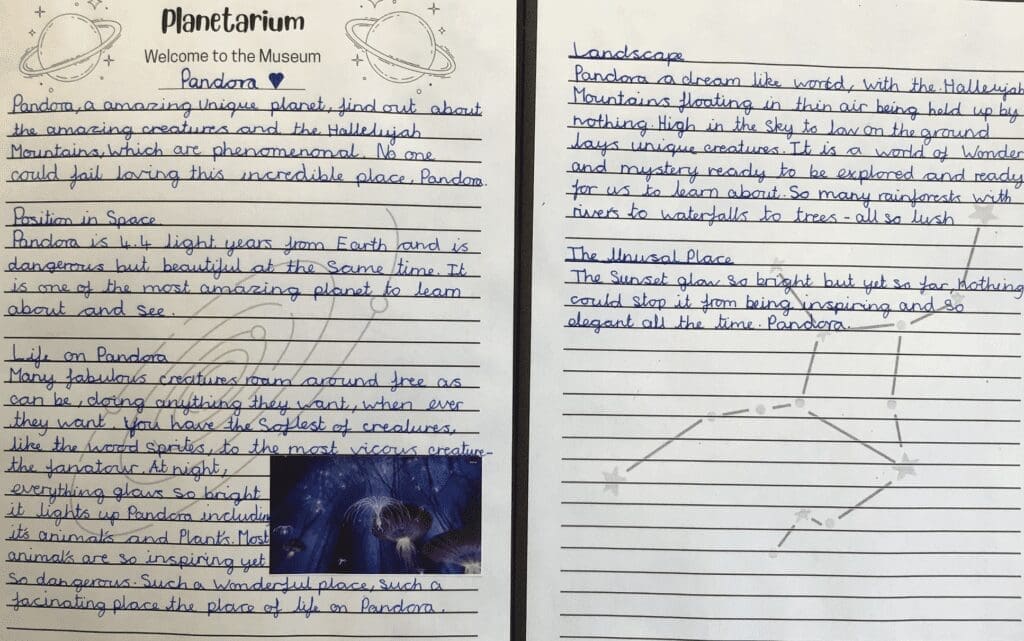 Planetarium
Welcome to the Museum
Pandora ♥
Pandora, a amazing unique planet, find out about
the amazing creatures and the Hallelujah
Mountains, which are phenomenonal. No one
could fail loving this incredible place, Pandora.
Position in Space
Pandora is 4.4 light years from Earth and is
dangerous but beautiful at the same time. It
is one of the most amazing planet to learn
about and see.
Life on Pandora
Many fabulous creatures roam around free as
can be, doing anything they want, when ever
they want. You have the softest of creatures,
like the wood sprites, to the most vicous creature-
the fanatour. At night,
everything glows so bright
it lights up Pandora including
it's animals and Plants. Most
animals are so inspiring yet
so dangerous. Such a wonderful place, such a
facinating place the place of life on Pandora.
Landscape
Pandora a dream like world, with the Hallelujah
Mountains floating in thin air being held up by
nothing. High in the sky to law on the ground
lays unique creatures. It is a world of Wonder
and mystery ready to be explored and ready
for us to learn about. So many rainforests with
rivers to waterfalls to trees - all so lush
The Unusal Place
The Sunset glow so bright but yet so far, Nothing
could stop it from being inspiring and so
elegant all the time. Pandora.